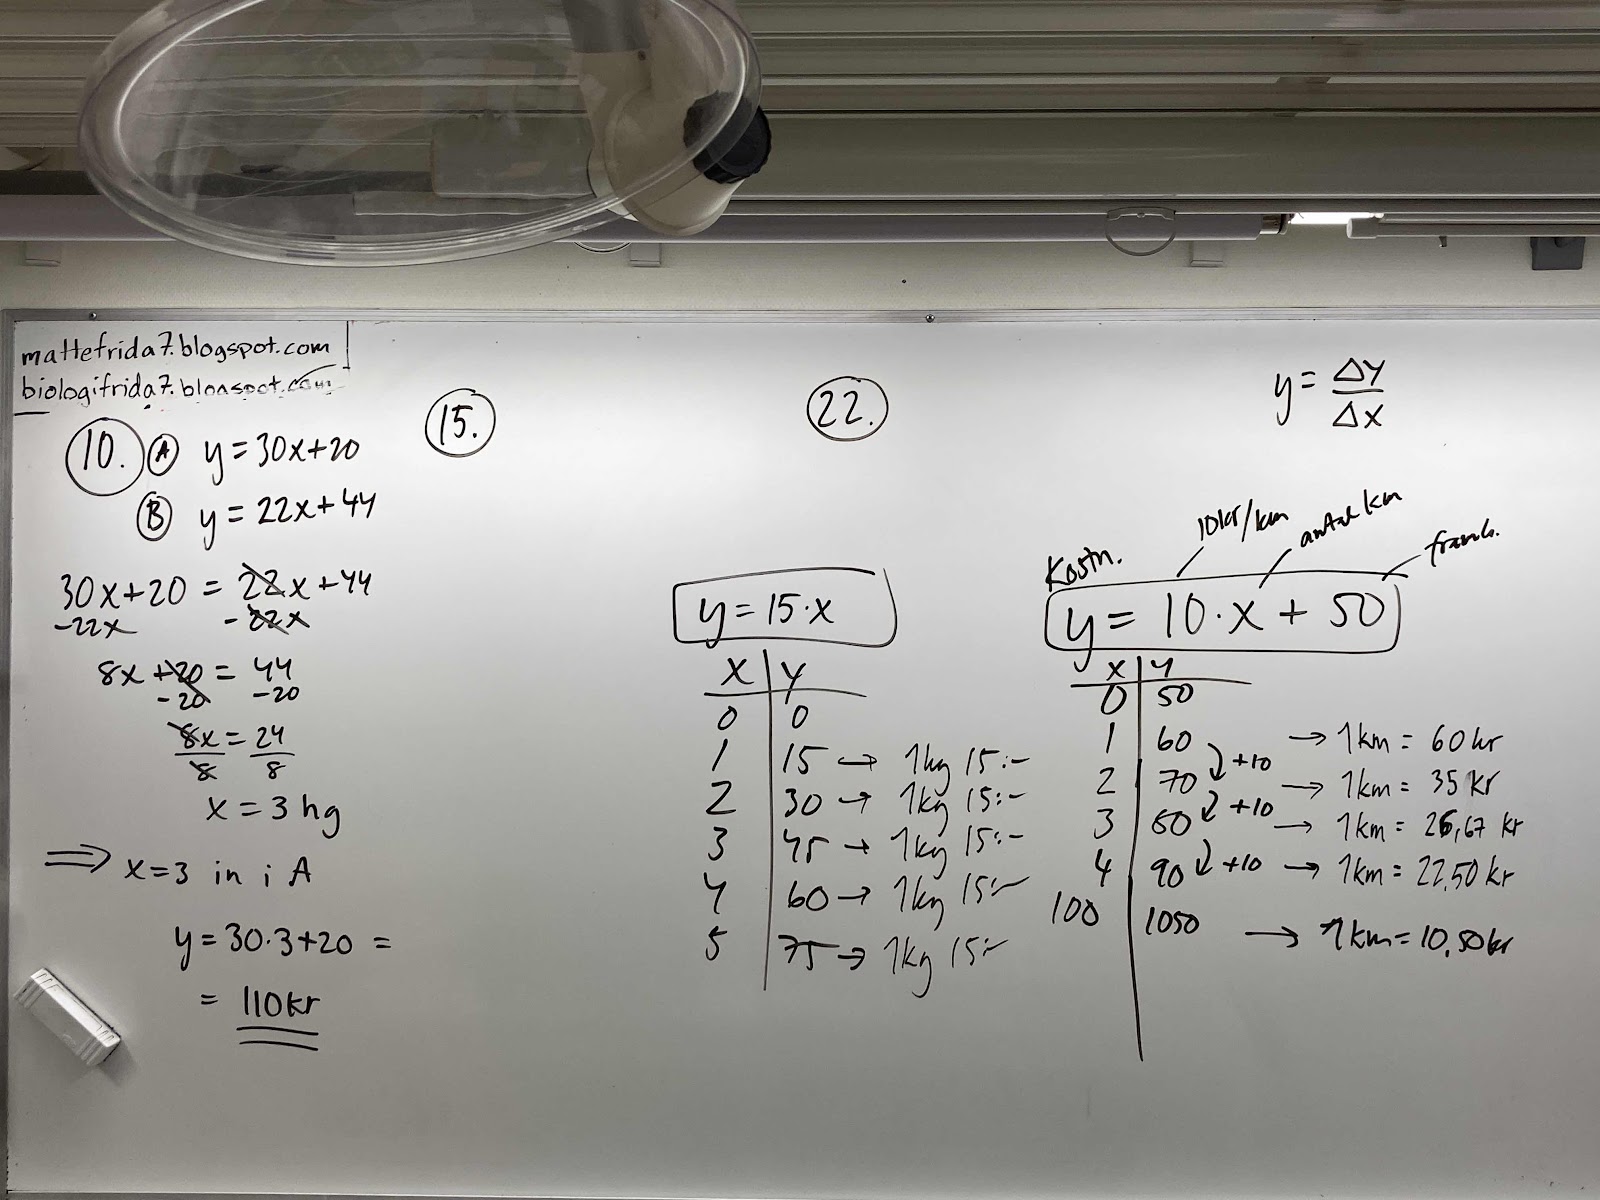 mattefrida7.blogspot.com
biologifrida7.blogspot.com
10. A y=30x+20
B y=22x+44
30x+20 = 22x+44
-22x -22x
8x+20 = 44
-20 -20
8x = 24
8 8
x = 3 hg
⇒ x=3 in i A
y=30·3+20 =
= 110kr
15.
22.
y=15·x
x y
0 0
1 15 → 1kg 15:-
2 30 → 1kg 15:-
3 45 → 1kg 15:-
4 60 → 1kg 15:-
5 75 → 1kg 15:-
y = Δy
Δx
10kr/km antal km
Kostn.
y = 10·x + 50
x y
0 50
1 60 → 1km = 60kr
+10
2 70 → 1km = 35 kr
+10
3 80 → 1km = 26,67 kr
+10
4 90 → 1km = 22,50 kr
100 1050 → 1km = 10,50kr